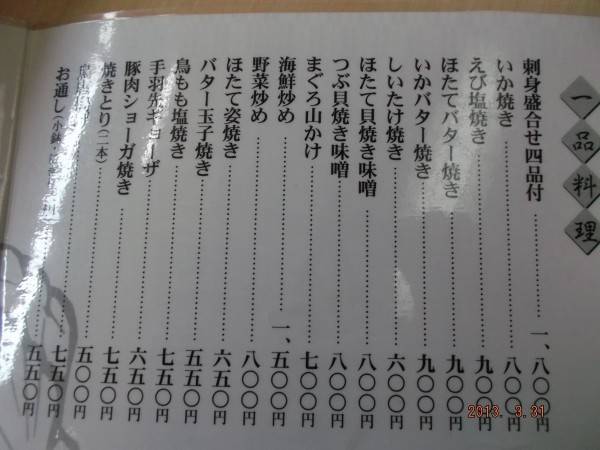 一品料理
刺身盛合せ四品付……一、八〇〇円
いか焼き……八〇〇円
えび塩焼き……九〇〇円
ほたてバター焼き……九〇〇円
いかバター焼き……九〇〇円
しいたけ焼き……六〇〇円
ほたて貝焼き味噌……八〇〇円
つぶ貝焼き味噌……八〇〇円
まぐろ山かけ……七〇〇円
海鮮炒め……一、五〇〇円
野菜炒め……八〇〇円
ほたて姿焼き……六五〇円
バター玉子焼き……五五〇円
鳥もも塩焼き……七五〇円
手羽先ギョーザ……六五〇円
豚肉ショーガ焼き……七五〇円
焼きとり(二本)……五〇〇円
七五〇円
お通し(小鉢……五五〇円
2013. 3.31